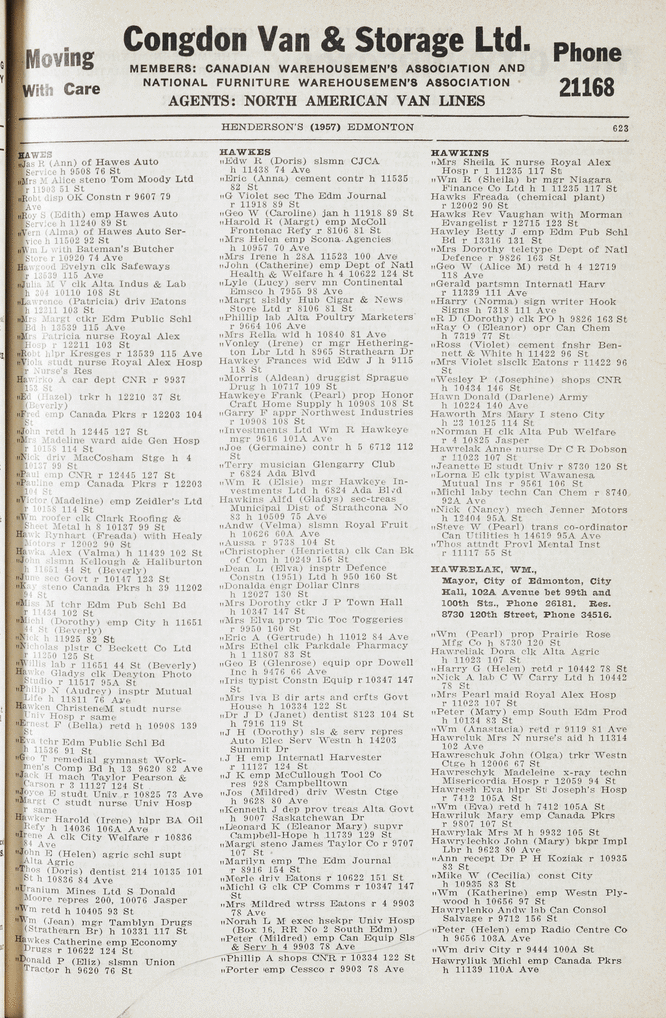 Moving
With Care
Congdon Van & Storage Ltd.
MEMBERS: CANADIAN WAREHOUSEMEN'S ASSOCIATION AND
NATIONAL FURNITURE WAREHOUSEMEN'S ASSOCIATION
AGENTS: NORTH AMERICAN VAN LINES
Phone
21168
HENDERSON'S (1957) EDMONTON
623
HAWES
"Jas R (Ann) of Hawes Auto
Service h 9508 76 St
"Mrs M Alice steno Tom Moody Ltd
r 11903 51 St
"Robt disp OK Constn r 9607 79
Ave
"Roy S (Edith) emp Hawes Auto
Service h 11240 89 St
"Vern (Alma) of Hawes Auto Ser-
vice h 11502 92 St
"Wm L with Bateman's Butcher
Store r 10920 74 Ave
Hawgood Evelyn clk Safeways
r 13539 115 Ave
"Julia M V clk Alta Indus & Lab
h 304 10110 108 St
"Lawrence (Patricia) driv Eatons
h 12211 103 St
"Mrs Margt ctkr Edm Public Schl
Bd h 13539 115 Ave
"Mrs Patricia nurse Royal Alex
Hosp r 12211 103 St
"Robt hlpr Kresges r 13539 115 Ave
"Viola studt nurse Royal Alex Hosp
r Nurse's Res
Hawirko A car dept CNR r 9937
153 St
"Ed (Hazel) trkr h 12210 37 St
(Beverly)
"Fred emp Canada Pkrs r 12203 104
St
"John retd h 12445 127 St
"Mrs Madeline ward aide Gen Hosp
r 10158 114 St
"Nick driv MacCosham Stge h 4
10137 99 St
"Paul emp CNR r 12445 127 St
"Pauline emp Canada Pkrs r 12203
104 St
"Victor (Madeline) emp Zeidler's Ltd
r 10158 114 St
"Wm roofer clk Clark Roofing &
Sheet Metal h 8 10137 99 St
Hawk Rynhart (Freada) with Healy
Motors r 12002 90 St
Hawka Alex (Valma) h 11439 102 St
"John slsmn Kellough & Haliburton
h 11651 44 St (Beverly)
"June sec Govt r 10147 123 St
"Kay steno Canada Pkrs h 39 11202
94 St
"Miss M tchr Edm Pub Schl Bd
r 11434 102 St
"Michl (Dorothy) emp City h 11651
44 St (Beverly)
"Nick h 11925 82 St
"Nicholas plstr C Beckett Co Ltd
r 11250 125 St
"Willis lab r 11651 44 St (Beverly)
Hawke Gladys clk Denyton Photo
Studio r 11517 95A St
"Philip N (Audrey) insptr Mutual
Life h 11811 76 Ave
Hawken ChristeneM studt nurse
Univ Hosp r same
"Ernest F (Bella) retd h 10908 139
St
"Eva tchr Edm Public Schl Bd
h 11536 91 St
"Geo T remedial gymnast Work-
men's Comp Bd h 13 9620 82 Ave
"Jack H mach Taylor Pearson &
Carson r 3 11127 124 St
"Joyce E studt Univ r 10825 73 Ave
"Margt C studt nurse Univ Hosp
r same
Hawker Harold (Irene) hlpr BA Oil
Refy h 14036 106A Ave
"Irene A clk City Welfare r 10836
84 Ave
"John E (Helen) agric schl supt
Alta Agric
"Thos (Doris) dentist 214 10135 101
St h 10836 84 Ave
"Uranium Mines Ltd S Donald
Moore repres 200, 10076 Jasper
"Wm retd h 10405 93 St
"Wm (Jean) mgr Tamblyn Drugs
(Strathearn Br) h 10331 117 St
Hawkes Catherine emp Economy
Drugs r 10622 124 St
"Donald P (Eliz) slsmn Union
Tractor h 9620 76 St
HAWKES
"Edw R (Doris) slsmn CJCA
h 11438 74 Ave
"Eric (Anna) cement contr h 11535
82 St
"G Violet sec The Edm Journal
r 11918 89 St
"Geo W (Caroline) jan h 11918 89 St
"Harold R (Margt) emp McColl
Frontenac Refy r 8106 81 St
"Mrs Helen emp Scona Agencies
h 10957 70 Ave
"Mrs Irene h 28A 11523 100 Ave
"John (Catherine) emp Dept of Natl
Health & Welfare h 4 10622 124 St
"Lyle (Lucy) serv mn Continental
Emsco h 7955 98 Ave
"Margt slsldy Hub Cigar & News
Store Ltd r 8106 81 St
"Phillip lab Alta Poultry Marketers
r 9664 106 Ave
"Mrs Rella wid h 10840 81 Ave
"Vonley (Irene) cr mgr Hethering-
ton Lbr Ltd h 8965 Strathearn Dr
Hawkey Frances wid Edw J h 9115
118 St
"Morris (Aldean) druggist Sprague
Drug h 10717 109 St
Hawkeye Frank (Pearl) prop Honor
Craft Home Supply h 10908 108 St
"Garry F appr Northwest Industries
r 10908 108 St
"Investments Ltd Wm R Hawkeye
mgr 9616 101A Ave
"Joe (Germaine) contr h 5 6712 112
St
"Terry musician Glengarry Club
r 6824 Ada Blvd
"Wm R (Elsie) mgr Hawkeye In-
vestments Ltd h 6824 Ada Blvd
Hawkins Alfd (Gladys) sec-treas
Municipal Dist of Strathcona No
83 h 10509 75 Ave
"Andw (Velma) slsmn Royal Fruit
h 10626 60A Ave
"Aussa r 9738 104 St
"Christopher (Henrietta) clk Can Bk
of Com h 10249 156 St
"Dean L (Elva) insptr Defence
Constn (1951) Ltd h 950 160 St
"Donalda engr Dollar Clnrs
h 12027 130 St
"Mrs Dorothy ctkr J P Town Hall
h 10347 147 St
"Mrs Elva prop Tic Toc Toggeries
r 9950 160 St
"Eric A (Gertrude) h 11012 84 Ave
"Mrs Ethel clk Parkdale Pharmacy
h 1 11807 83 St
"Geo B (Glenrose) equip opr Dowell
Inc h 9476 66 Ave
"Iris typist Constn Equip r 10347 147
St
"Mrs Iva B dir arts and crfts Govt
House h 10334 122 St
"Dr J D (Janet) dentist 8123 104 St
h 7916 119 St
"J H (Dorothy) sls & serv repres
Auto Elec Serv Westn h 14203
Summit Dr
"J H emp Internatl Harvester
r 11127 124 St
"J K emp McCullough Tool Co
res 928 Campbelltown
"Jos (Mildred) driv Westn Ctge
h 9628 80 Ave
"Kenneth J dep prov treas Alta Govt
h 9007 Saskatchewan Dr
"Leonard K (Eleanor Mary) supvr
Campbell-Hope h 11739 129 St
"Margt steno James Taylor Co r 9707
107 St
"Marilyn emp The Edm Journal
r 8916 154 St
"Merle driv Eatons r 10622 151 St
"Michl G clk CP Comms r 10347 147
St
"Mrs Mildred wtrss Eatons r 4 9903
78 Ave
"Norah L M exec hsekpr Univ Hosp
(Box 16, RR No 2 South Edm)
"Peter (Mildred) emp Can Equip Sls
& Serv h 4 9903 78 Ave
"Phillip A shops CNR r 10334 122 St
"Porter emp Cessco r 9903 78 Ave
HAWKINS
"Mrs Sheila K nurse Royal Alex
Hosp r 1 11235 117 St
"Wm R (Sheila) br mgr Niagara
Finance Co Ltd h 1 11235 117 St
Hawks Freada (chemical plant)
r 12002 90 St
Hawks Rev Vaughan with Morman
Evangelist r 12715 123 St
Hawley Betty J emp Edm Pub Schl
Bd r 13316 131 St
"Mrs Dorothy teletype Dept of Natl
Defence r 9826 163 St
"Geo W (Alice M) retd h 4 12719
118 Ave
"Gerald partsmn Internatl Harv
r 11339 111 Ave
"Harry (Norma) sign writer Hook
Signs h 7318 111 Ave
"R D (Dorothy) clk PO h 9826 163 St
"Ray O (Eleanor) opr Can Chem
h 7319 77 St
"Ross (Violet) cement fnshr Ben-
nett & White h 11422 96 St
"Mrs Violet slsclk Eatons r 11422 96
St
"Wesley P (Josephine) shops CNR
h 10434 146 St
Hawn Donald (Darlene) Army
h 10224 140 Ave
Haworth Mrs Mary I steno City
h 23 10125 114 St
"Norman H clk Alta Pub Welfare
r 4 10825 Jasper
Hawrelak Anne nurse Dr C R Dobson
r 11023 107 St
"Jeanette E studt Univ r 8730 120 St
"Lorna E clk typist Wawanesa
Mutual Ins r 9561 106 St
"Michl laby techn Can Chem r 8740
92A Ave
"Nick (Nancy) mech Jenner Motors
h 12404 95A St
"Steve W (Pearl) trans co-ordinator
Can Utilities h 14619 95A Ave
"Thos attndt Provl Mental Inst
r 11117 55 St
HAWRELAK, WM.,
Mayor, City of Edmonton, City
Hall, 102A Avenue bet 99th and
100th Sts., Phone 26181. Res.
8730 120th Street, Phone 34516.
"Wm (Pearl) prop Prairie Rose
Mfg Co h 8730 120 St
Hawreliak Dora clk Alta Agric
h 11023 107 St
"Harry G (Helen) retd r 10442 78 St
"Nick A lab C W Carry Ltd h 10442
78 St
"Mrs Pearl maid Royal Alex Hosp
r 11023 107 St
"Peter (Mary) emp South Edm Prod
h 10134 83 St
"Wm (Anastacia) retd r 9119 81 Ave
Hawreliuk Mrs N nurse's aid h 11314
102 Ave
Hawreschuk John (Olga) trkr Westn
Ctge h 12006 67 St
Hawreschyk Madeleine x-ray techn
Misericordia Hosp r 12059 94 St
Hawresh Eva hlpr St Joseph's Hosp
r 7412 105A St
"Wm (Eva) retd h 7412 105A St
Hawriluk Mary emp Canada Pkrs
r 9807 107 St
Hawrylak Mrs M h 9932 105 St
Hawrylechko John (Mary) bkpr Impl
Lbr h 9623 80 Ave
"Ann recept Dr P H Koziak r 10935
83 St
"Mike W (Cecilia) const City
h 10935 83 St
"Wm (Katherine) emp Westn Ply-
wood h 10656 97 St
Hawrylenko Andw lab Can Consol
Salvage r 9712 156 St
"Peter (Helen) emp Radio Centre Co
h 9656 103A Ave
"Wm driv City r 9444 100A St
Hawryliuk Michl emp Canada Pkrs
h 11139 110A Ave